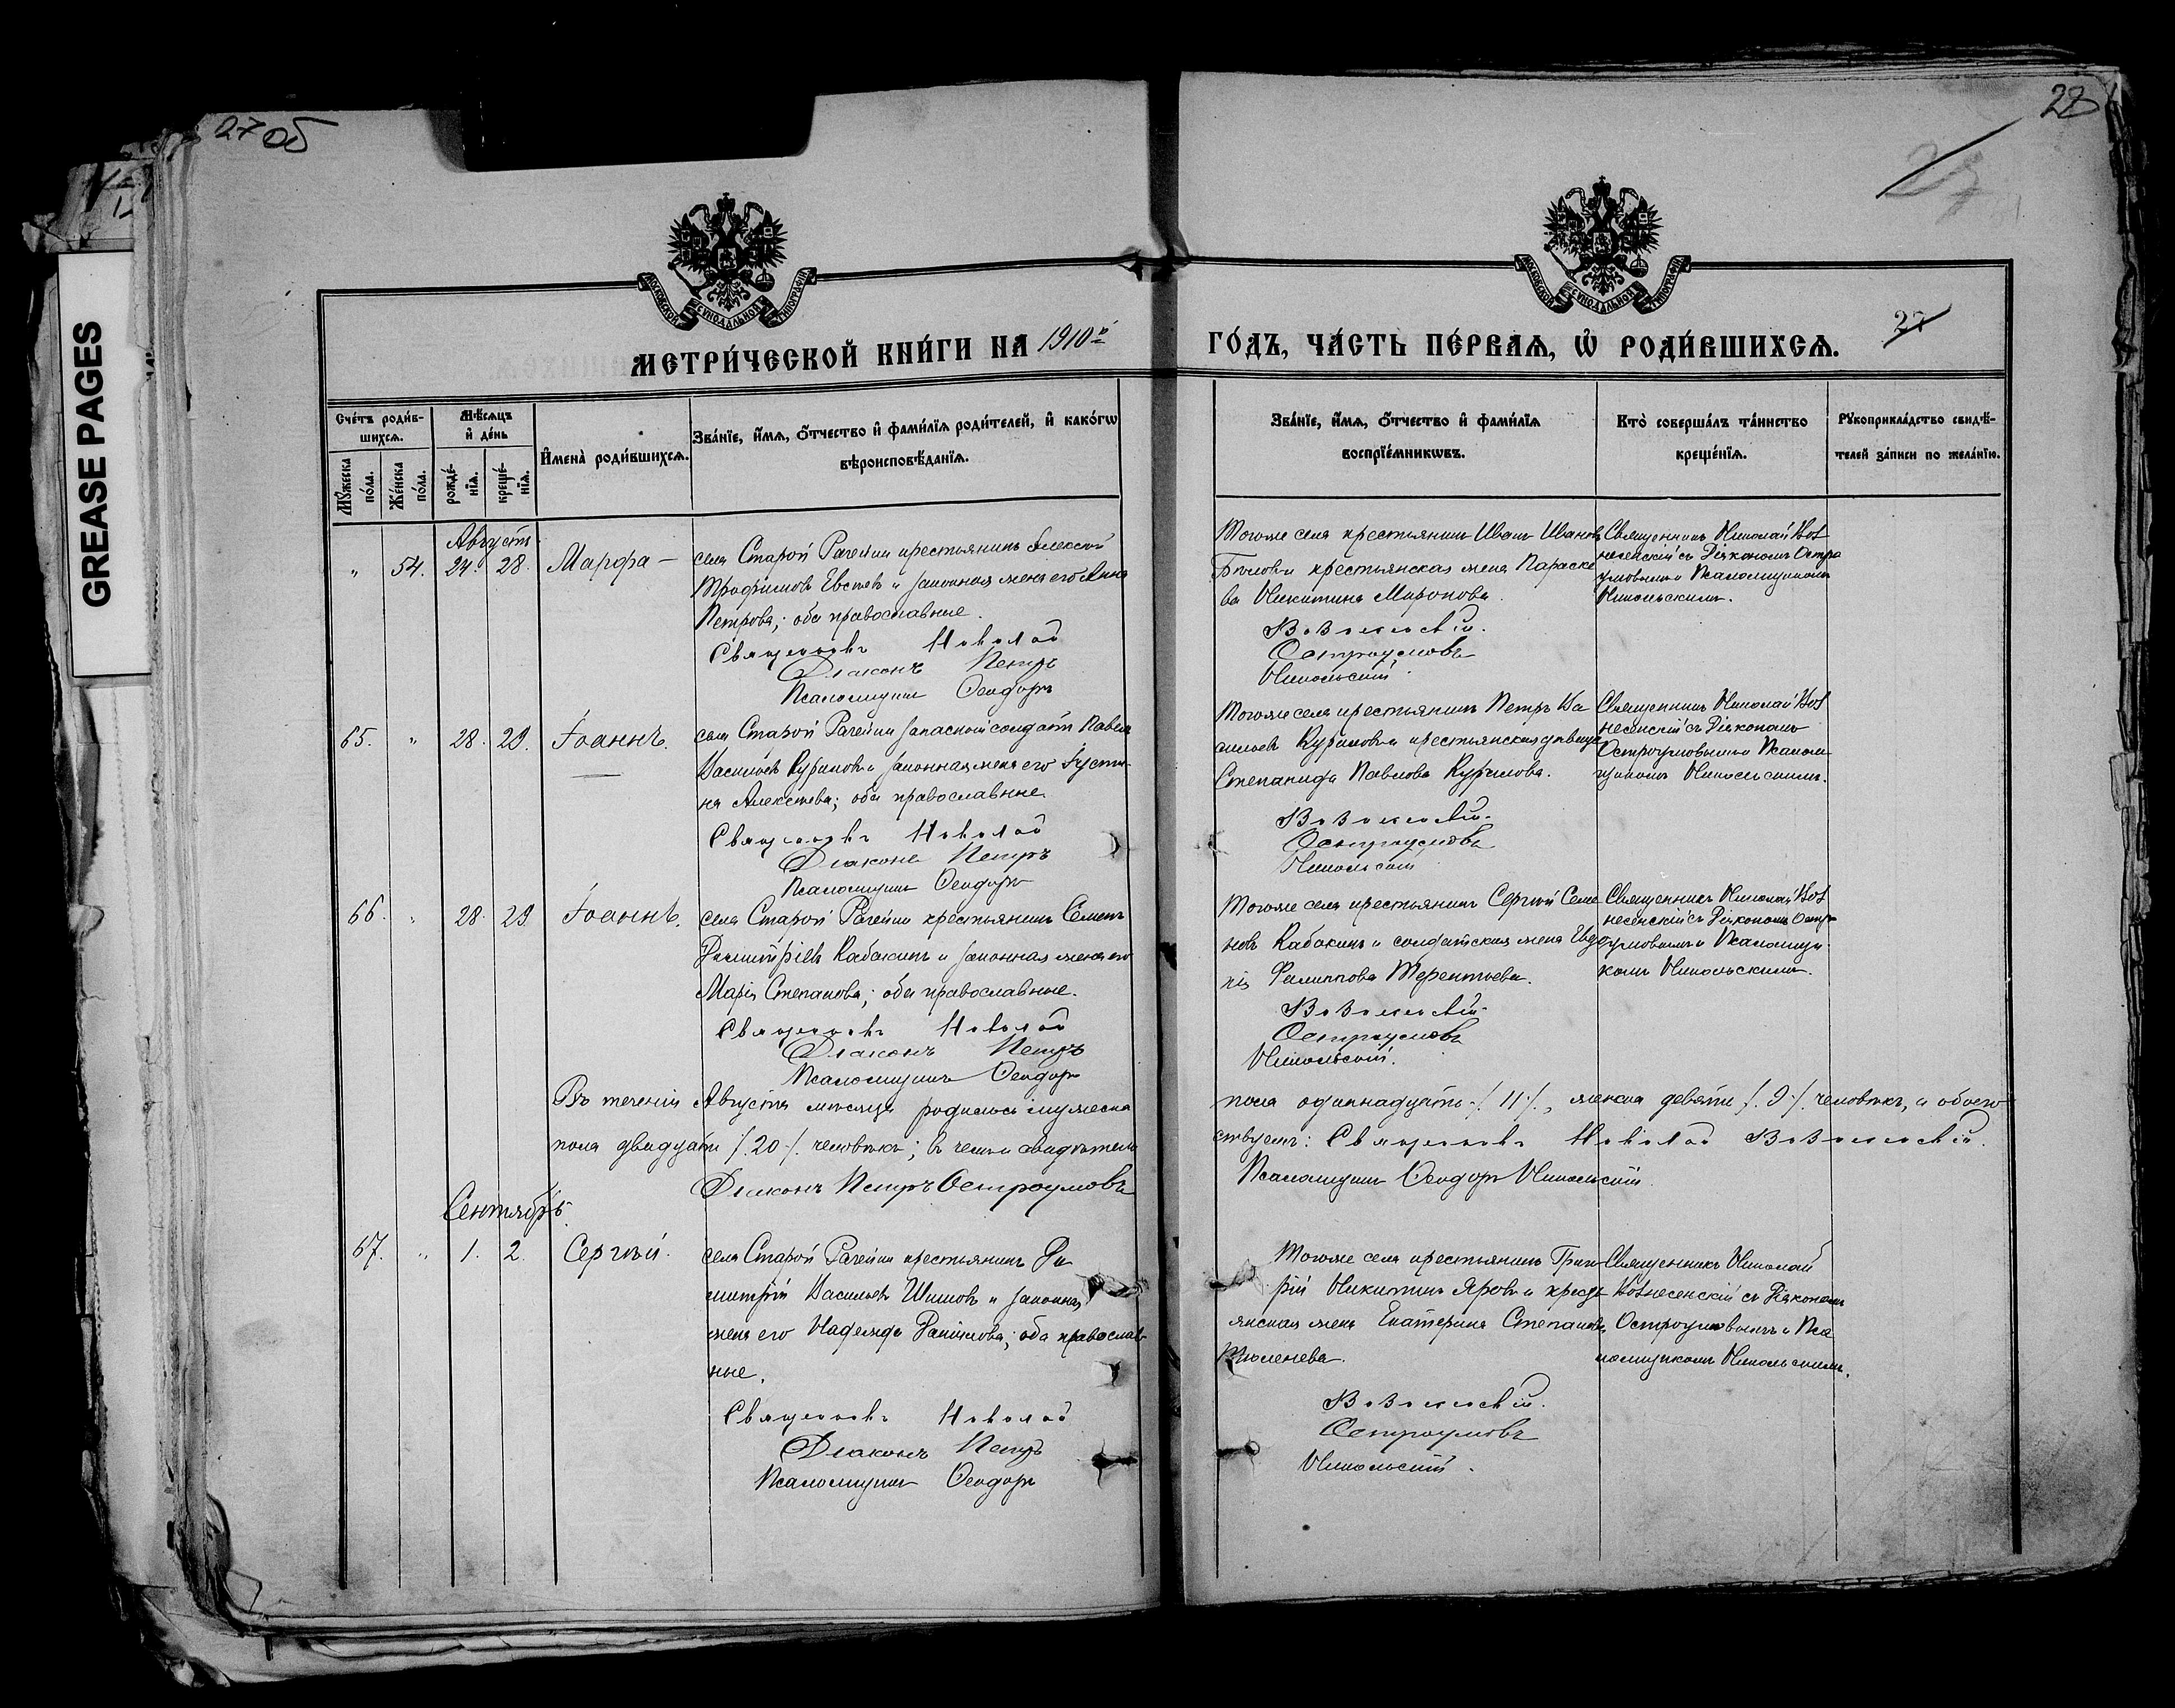 GREASE PAGES
27 об
28
27
МЕТРИ́ЧЕСКОЙ КНИ́ГИ НА 1910й
ГО́ДЪ, ЧА́СТЬ ПЕ́РВАѦ, Ѡ҆ РОДИ́ВШИХСѦ.
Сче́тъ роди́в-
шихсѧ.
Мѣ́сѧцъ
и҆ де́нь
И҆мена̀ роди́вшихсѧ.
Зва́нїе, и҆́мѧ, ѻ҆́тчество и҆ фами́лїѧ роди́телей, и҆ како́гѡ
вѣроисповѣ́данїѧ.
Мꙋ́жеска
по́ла.
Же́нска
по́ла.
рожде́-
нїѧ.
креще́-
нїѧ.
Зва́нїе, и҆́мѧ, ѻ҆́тчество и҆ фами́лїѧ
воспрїе́мникѡвъ.
Кто̀ соверша́лъ та́инство
креще́нїѧ.
Рꙋкоприкла́дство свидѣ́-
телей за́писи по жела́нїю.
Августъ
" 54. 24. 28. Марфа –
села Старой Рачейки крестьянинъ Алексей
Трофимовъ Евстевъ и законная жена его Анна
Петрова; оба православные.
Священникъ Николай
Діаконъ Петръ
Псаломщикъ Ѳеодоръ
Тогоже села крестьянинъ Иванъ Ивановъ
Беловъ и крестьянская жена Параске
ва Никитина Миронова.
Вознесенскій.
Остроумовъ
Никольскій.
Священникъ Николай Воз
несенскій съ Діакономъ Остро
умовымъ и Псаломщикомъ
Никольскимъ.
65. " 28. 29. Іоаннъ.
села Старой Рачейки запасной солдатъ Павелъ
Васильевъ Куриловъ и законная жена его Іусти-
на Алексеева; оба православные.
Священникъ Николай
Діаконъ Петръ
Псаломщикъ Ѳеодоръ
Тогоже села крестьянинъ Петръ Ва
сильевъ Куриловъ и крестьянская девица
Степанида Павлова Курилова.
Вознесенскій.
Остроумовъ
Никольскій
Священникъ Николай Воз
несенскій съ Діакономъ
Остроумовымъ и Псалом
щикомъ Никольскимъ.
66. " 28. 29 Іоаннъ.
села Старой Рачейки крестьянинъ Семенъ
Димитріевъ Кабакинъ и законная жена его
Марія Степанова; оба православные.
Священникъ Николай
Діаконъ Петръ
Псаломщикъ Ѳеодоръ
Тогоже села крестьянинъ Сергій Семе
новъ Кабакинъ и солдатская жена Евдо
кія Филиппова Терентьева.
Вознесенскій.
Остроумовъ
Никольскій.
Священникъ Николай Воз
несенскій съ Діакономъ Остро
умовымъ и Псаломщи
комъ Никольскимъ.
Въ теченіи Августа месяца родилось мужеска пола одиннадцать /. 11 /., женска девять /. 9 /. человекъ, а обоего
пола двадцать /. 20 /. человекъ; въ чемъ и свидетель
ствуемъ: Священникъ Николай Вознесенскій.
Діаконъ Петръ Остроумовъ
Псаломщикъ Ѳеодоръ Никольскій
Сентябрь.
67. " 1. 2. Сергій.
села Старой Рачейки крестьянинъ Ди
митрій Васильевъ Шишовъ и законная
жена его Надежда Данилова; оба православ
ные.
Священникъ Николай
Діаконъ Петръ
Псаломщикъ Ѳеодоръ
Тогоже села крестьянинъ Григо
рій Никитинъ Яровъ и кресть
янская жена Екатерина Степанова
Тюленева.
Вознесенскій.
Остроумовъ
Никольскій.
Священникъ Николай
Вознесенскій съ Діакономъ
Остроумовымъ и Пса
ломщикомъ Никольскимъ.